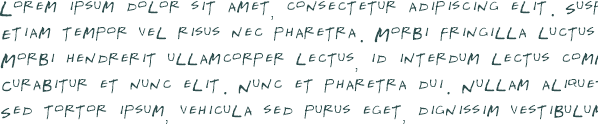 Lorem ipsum dolor sit amet, consectetur adipiscing elit. Susp
etiam tempor vel risus nec pharetra. Morbi fringilla luctus
Morbi hendrerit ullamcorper lectus, id interdum lectus comm
curabitur et nunc elit. Nunc et pharetra dui. Nullam alique
sed tortor ipsum, vehicula sed purus eget, dignissim vestibulum